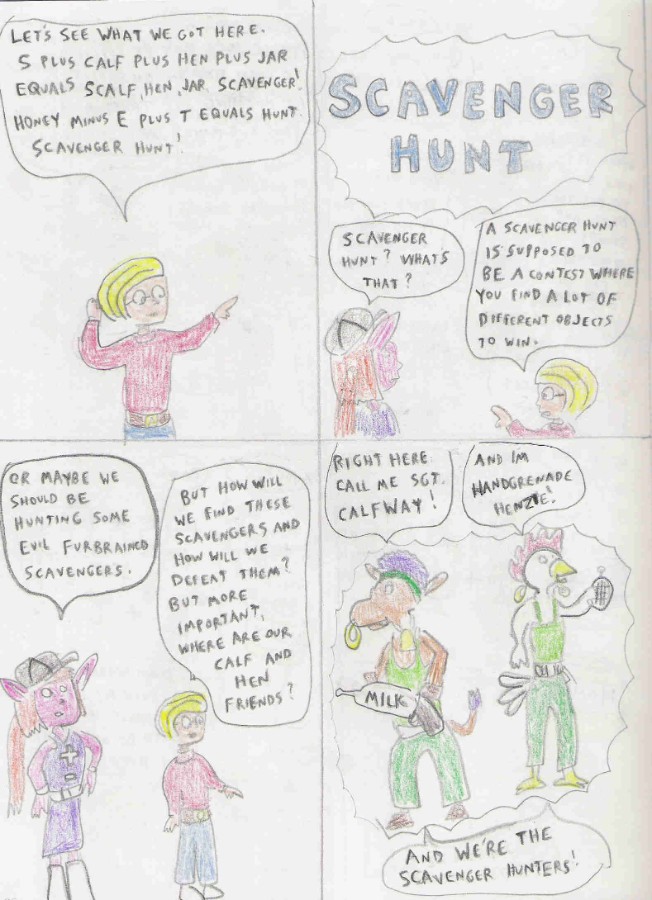 LET'S SEE WHAT WE GOT HERE.
S PLUS CALF PLUS HEN PLUS JAR
EQUALS SCALF, HEN, JAR. SCAVENGER!
HONEY MINUS E PLUS T EQUALS HUNT.
SCAVENGER HUNT!
SCAVENGER
HUNT
SCAVENGER
HUNT? WHAT'S
THAT?
A SCAVENGER HUNT
IS SUPPOSED TO
BE A CONTEST WHERE
YOU FIND A LOT OF
DIFFERENT OBJECTS
TO WIN.
OR MAYBE WE
SHOULD BE
HUNTING SOME
EVIL FURBRAINED
SCAVENGERS.
BUT HOW WILL
WE FIND THESE
SCAVENGERS AND
HOW WILL WE
DEFEAT THEM?
BUT MORE
IMPORTANT,
WHERE ARE OUR
CALF AND
HEN
FRIENDS?
RIGHT HERE.
CALL ME SGT.
CALFWAY!
AND IM
HANDGRENADE
HENZIE!
MILK
AND WE'RE THE
SCAVENGER HUNTERS!